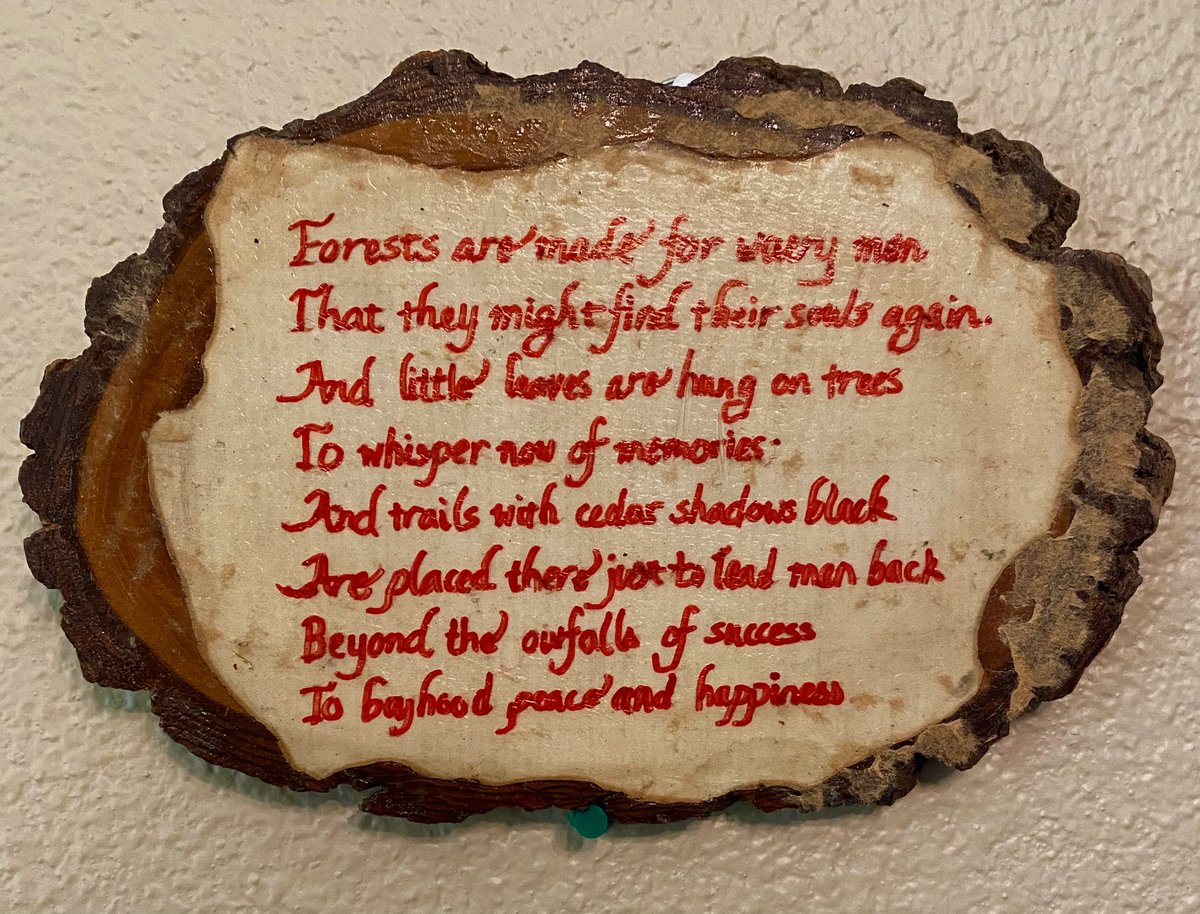 Forests are made for weary men
That they might find their souls again.
And little leaves are hung on trees
To whisper now of memories.
And trails with cedar shadows black
Are placed there just to lead men back
Beyond the outfalls of success
To boyhood peace and happiness